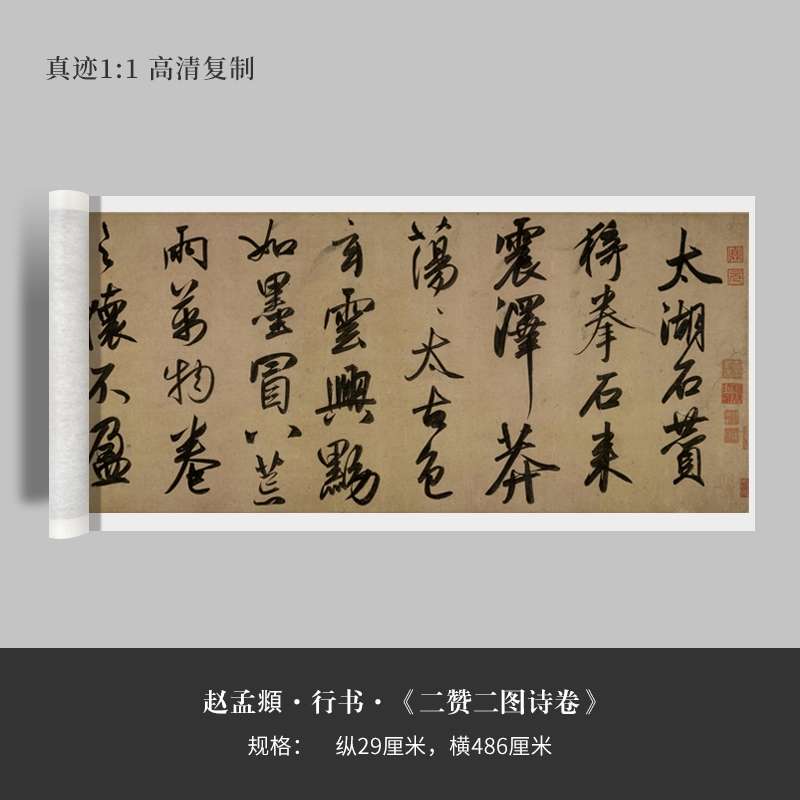 真迹1:1 高清复制
太湖石赞
猗拳石来
震泽莽
荡、太古色
玄雲興黝
如墨冒八荒
雨萬物卷
之懷不盈
赵孟頫·行书·《二赞二图诗卷》
规格： 纵29厘米，横486厘米